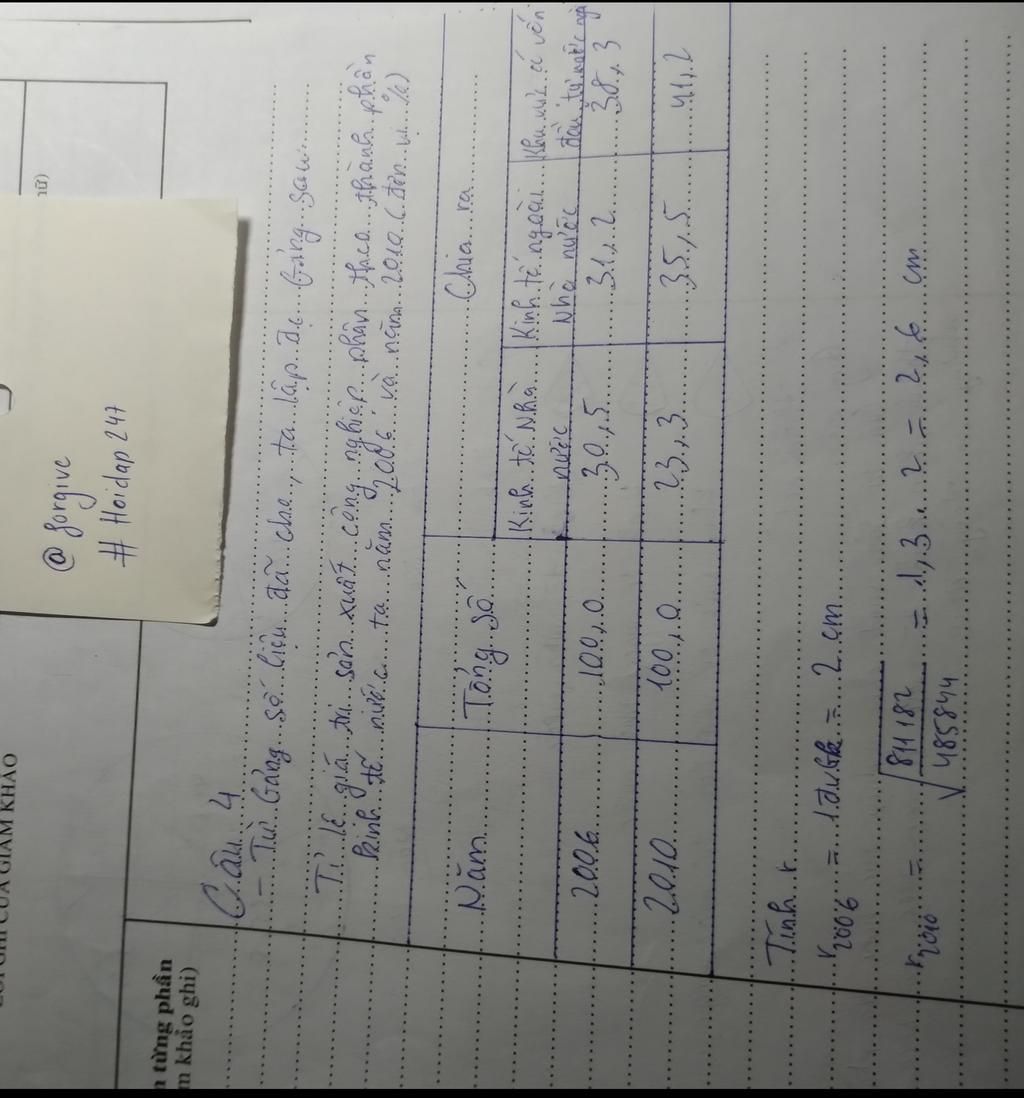 LỜI GHI CỦA GIÁM KHẢO
n từng phần
m khảo ghi)
@ forgive
# Hoidap 247
Câu 4
- Từ bảng số liệu đã cho, ta lập đc bảng sau
Tỉ lệ giá trị sản xuất công nghiệp phân theo thành phần
kinh tế nước ta năm 2006 và năm 2010 (đơn vị %)
Năm Tổng số Chia ra
Kinh tế Nhà nước Kinh tế ngoài Nhà nước Khu vực có vốn đầu tư nước ngoài
2006 100,0 30,5 31,2 38,3
2010 100,0 23,3 35,5 41,2
Tính r
r2006 = 1đvbk = 2 cm
r2010 = √811182/485844 = 1,3 . 2 = 2,6 cm